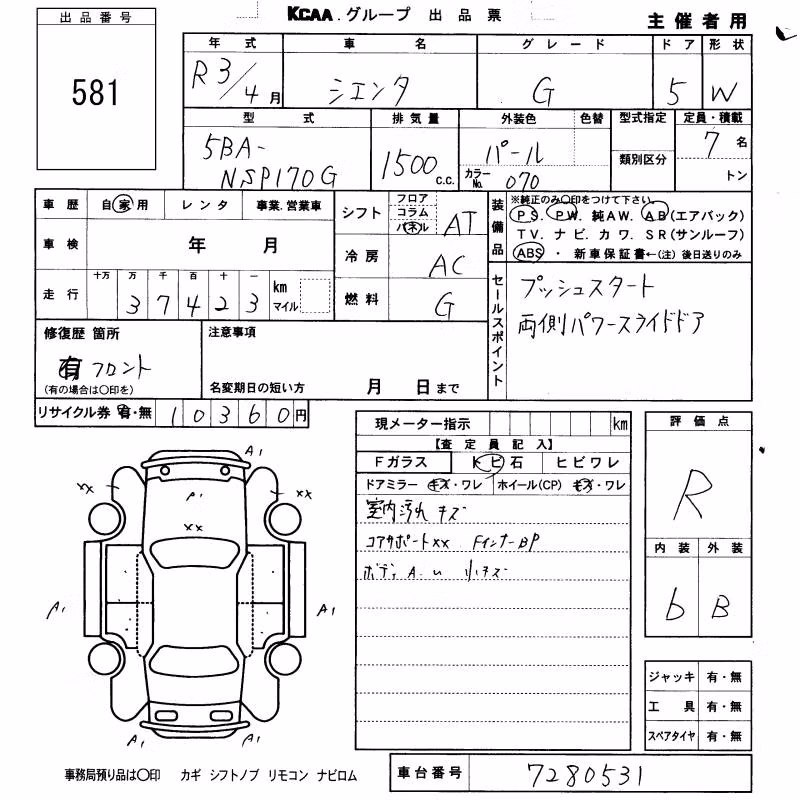 KCAA.グループ 出品票
主催者用
出品番号
581
年式 車名 グレード ドア 形状
R3/4月 シエンタ G 5 W
型式 排気量 外装色 色替 型式指定 定員・積載
5BA-NSP170G 1500 c.c. パール カラーNo. 070 類別区分 7名 トン
車歴 自家用 レンタ 事業.営業車
車検 年 月
走行 十万 万 千 百 十 一 km マイル
3 7 4 2 3
シフト フロア コラム パネル AT
冷房 AC
燃料 G
装備品
※純正のみ〇印をつけて下さい。
PS. PW. 純AW. AB(エアバック)
TV. ナビ. カワ. SR(サンルーフ)
ABS ・ 新車保証書←(注) 後日送りのみ
セールスポイント
プッシュスタート
両側パワースライドドア
修復歴 箇所
有 フロント
(有の場合は〇印を)
注意事項
名変期日の短い方 月 日まで
リサイクル券 有・無 10360円
現メーター指示 km
【査定員記入】
Fガラス トビ石 ヒビワレ
ドアミラー キズ・ワレ ホイール(CP) キズ・ワレ
室内汚れ キズ
コアサポートxx FインナーBP
ボディ A. u 小キズ
評価点
R
内装 外装
b B
ジャッキ 有・無
工具 有・無
スペアタイヤ 有・無
A1
xx
A1
xx
xx
A1
A1
A1
A1
事務局預り品は〇印 カギ シフトノブ リモコン ナビロム
車台番号 7280531